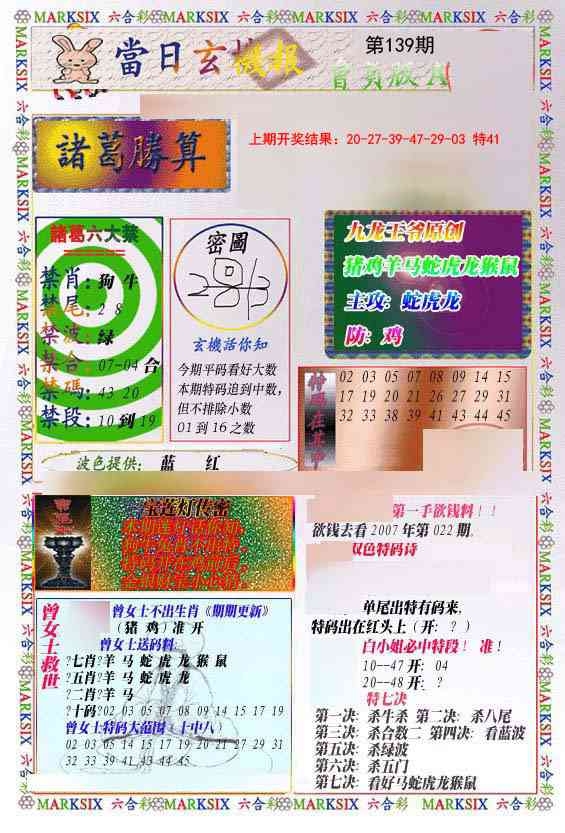 MARKSIX 六合彩 MARKSIX 六合彩 MARKSIX 六合彩 MARKSIX 六合彩 MARKSIX
當日玄機報
第139期
會員版A
諸葛勝算
上期开奖结果：20-27-39-47-29-03 特41
諸葛六大禁
禁肖：狗牛
禁尾：2 8
禁波：绿
禁合：07-04合
禁碼：43 20
禁段：10到19
密圖
玄機活你知
今期平码看好大数
本期特码追到中数，
但不排除小数
01到16之数
九龙王爷原创
猪鸡羊马蛇虎龙猴鼠
主攻：蛇虎龙
防：鸡
特码在其中
02 03 05 07 08 09 14 15
17 19 20 21 26 27 29 31
32 33 38 39 41 43 44 45
波色提供：蓝 红
宝莲灯传密
曾女士救世
曾女士不出生肖《期期更新》
（猪 鸡）准开
曾女士送码料
?七肖?羊马蛇虎龙猴鼠
?五肖?羊马蛇虎龙
?二肖?羊马
?十码?02 03 05 07 08 09 14 15 17 19
曾女士特码大范围（十中八）
02 03 05 14 15 17 19 20 21 27 29 31
32 33 39 41 43 44 45
第一手欲钱料！！
欲钱去看2007年第022期。
双色特码诗
单尾出特有码来，
特码出在红头上（开：？）
白小姐必中特段！ 准！
10--47 开：04
20--48 开：？
特七决
第一决：杀牛杀 第二决：杀八尾
第三决：杀合数二 第四决：看蓝波
第五决：杀绿波
第六决：杀五门
第七决：看好马蛇虎龙猴鼠
MARKSIX 六合彩 MARKSIX 六合彩 MARKSIX 六合彩 MARKSIX 六合彩 MARKSIX